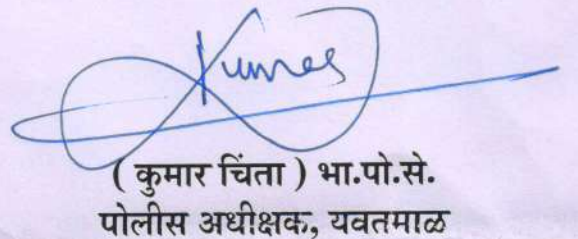 Kumar
( कुमार चिंता ) भा.पो.से.
पोलीस अधीक्षक, यवतमाळ